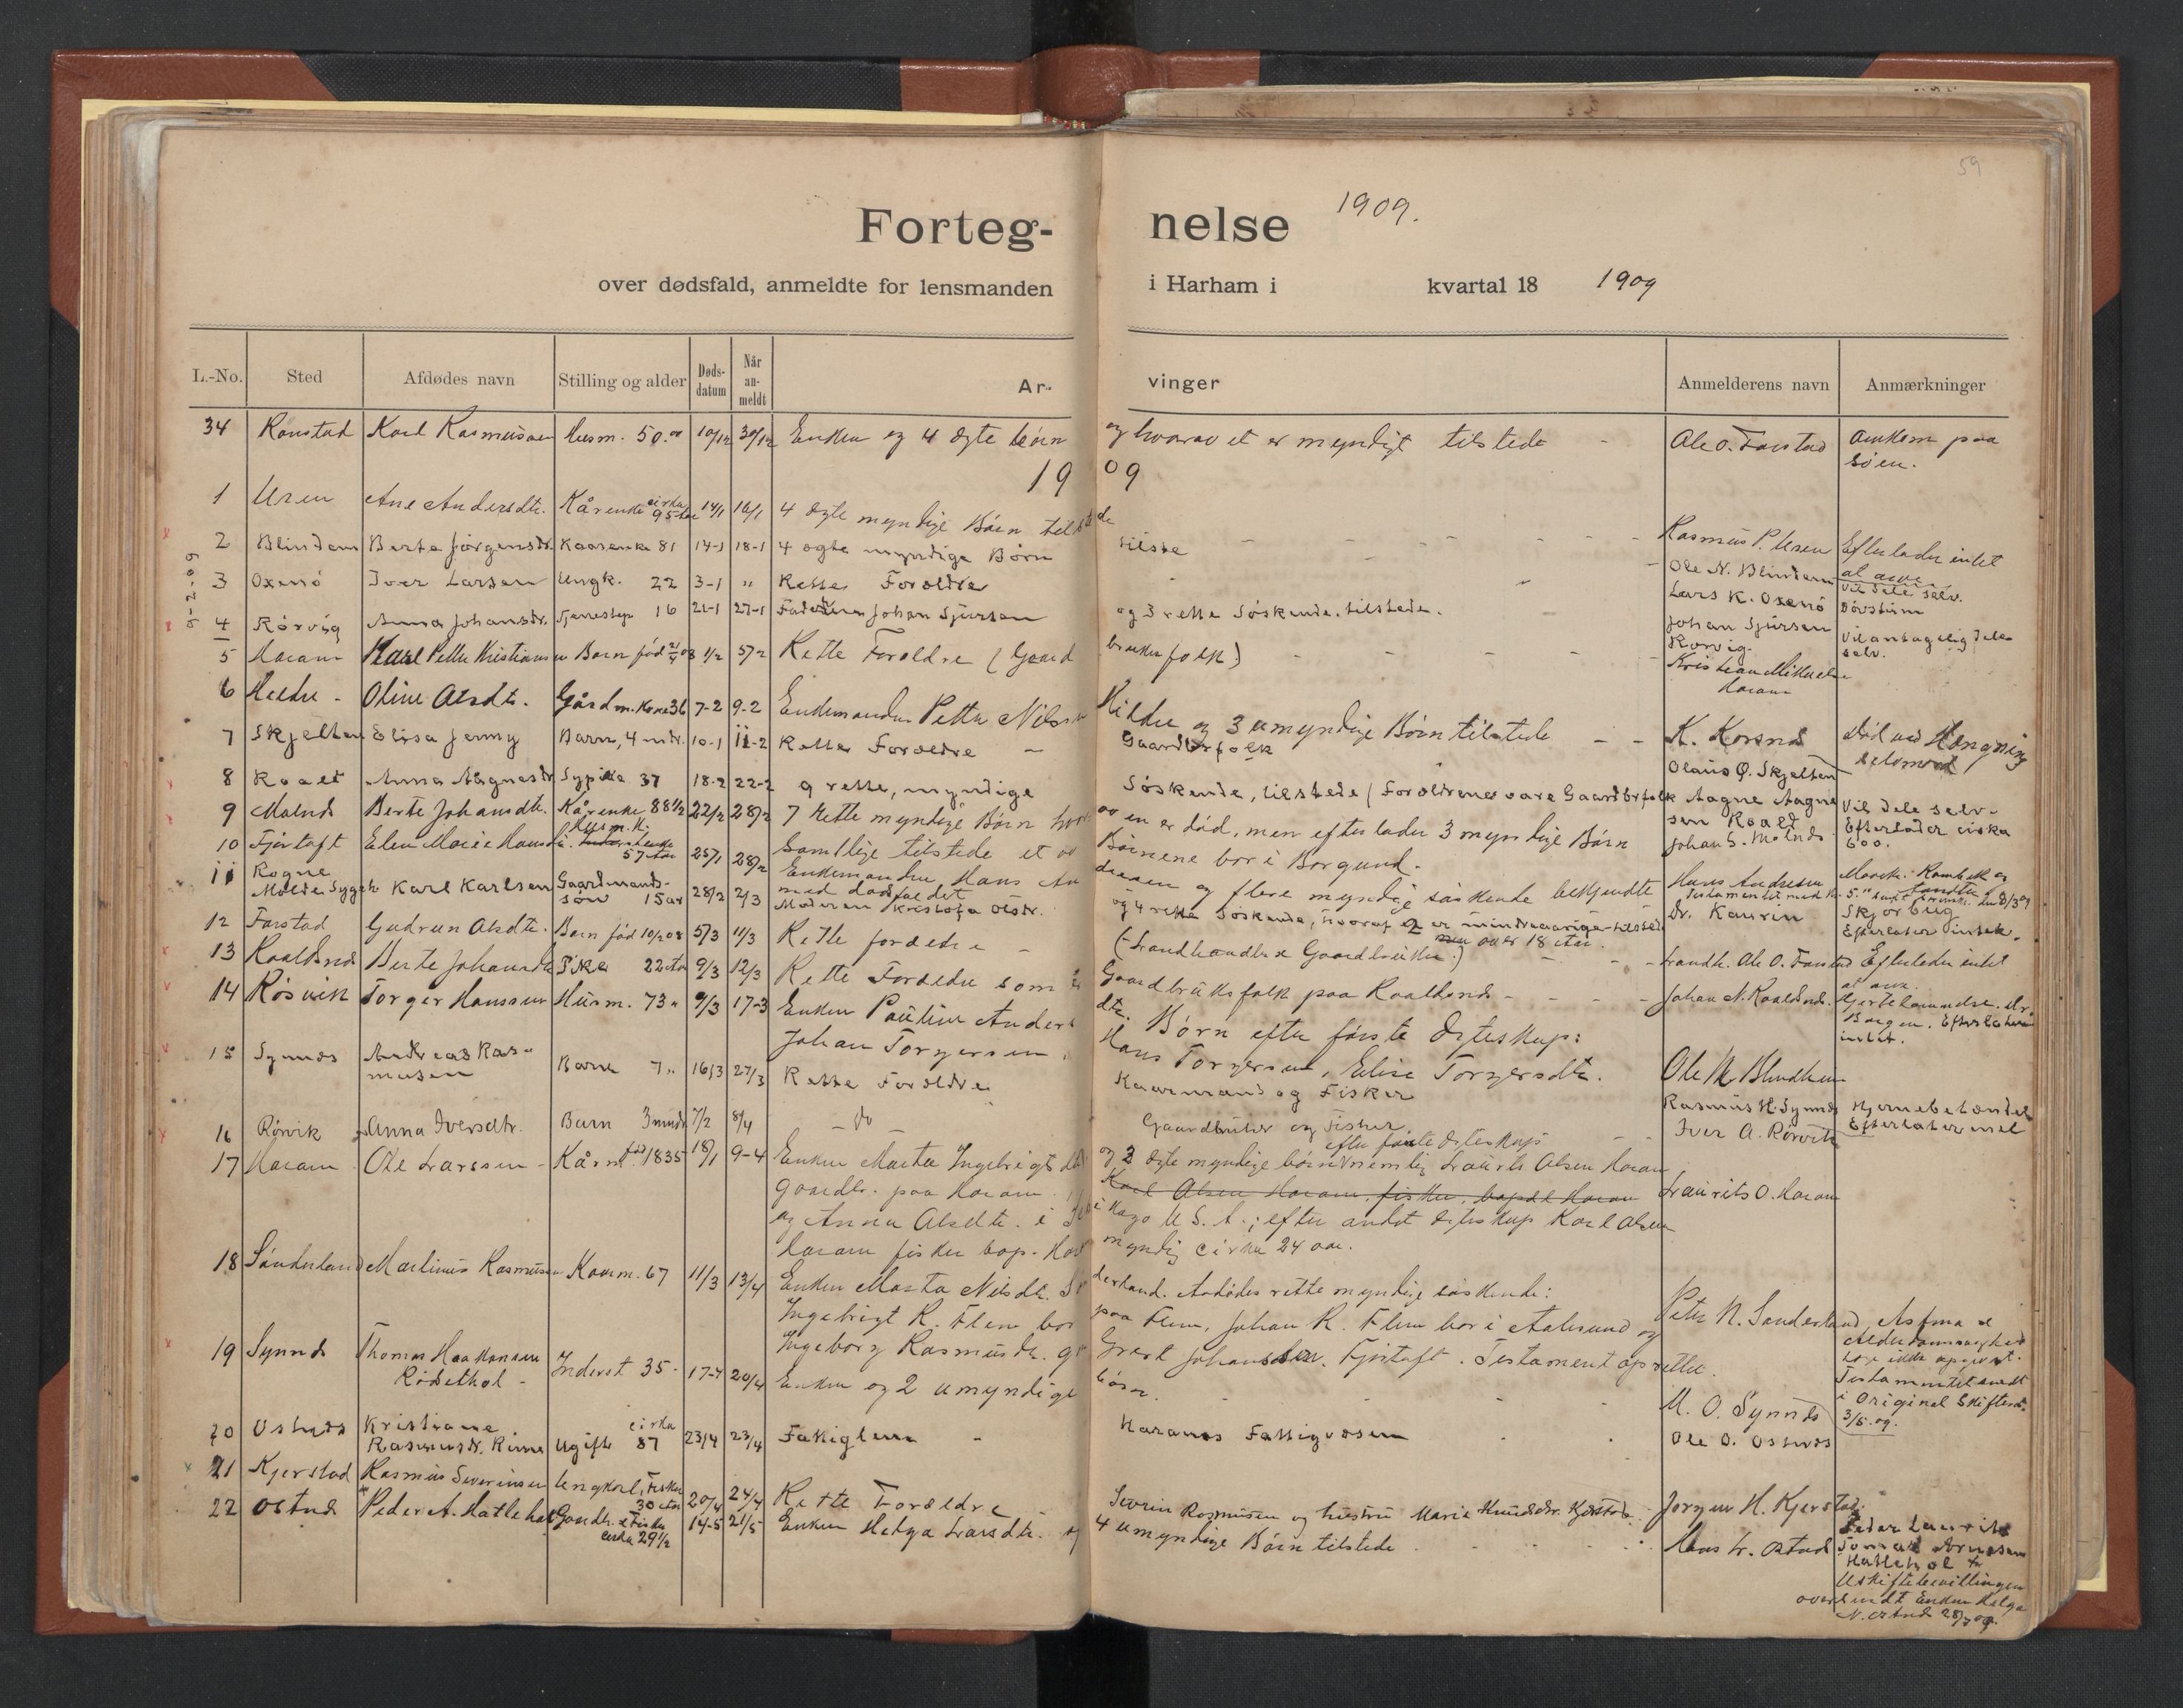 59
Forteg- nelse 1909.
over dødsfald, anmeldte for lensmanden i Harham i kvartal 18 1909
L.-No. Sted Afdødes navn Stilling og alder Døds-datum Når an-meldt Ar- vinger Anmelderens navn Anmærkninger
34 Karl Rasmussen Husm. 50. 10/12 30/12 Enken og 4 ægte børn hvorav et er myndigt tilstede Ole O. Farstad Omkom paa
søen.
19 09
1 Uren Ane Andersdtr. Kårenke cirka 95 14/1 16/1 4 ægte myndige Børn tilstede Rasmus P. Uren Efterlader intet
at arve.
9-2-09
2 Blindem Berte Jørgensdr. Kaarenke 81 14-1 18-1 4 ægte myndige Børn tilste Ole N. Blindem Vil dele selv.
3 Oxenö Iver Larsen Ungk. 22 3-1 " Rette Forældre Lars K. Oxenö
4 Rørvig Anna Johansdr. 16 21-1 27-1 Johan Sjursen og 3 rette Søskende. tilstede. Johan Sjursen
Rørvig. selv.
5 Haram Karl Petter Kristiansen Barn fød 1/2 5/2 Rette Forældre (Gaard brukerfolk) Kristian Mikkelsen
Haram
6 Hildre Oline Olsdtr. Gårdm. Kone 36 7-2 9-2 Enkemanden Petter Nilssen Hildre og 3 umyndige Børn tilstede K. Korsnes Død ved Hængning
selvmord
7 Skjelten Elisa Jenny Barn, 4 mdr. 10-1 11-2 Rette Forældre Gaardbrfolk Olaus O. Skjelten
8 Roalt Anna Aagnesdr 37 18-2 22-2 9 rette, myndige Søskende, tilstede (Forældrene vare Gaardbrfolk Aagne Aagne
sen Roald Vil dele selv.
9 Molnes Berte Johansdtr. Kårenke 88 1/2 22/2 28/2 7 Rette myndige Børn hvor av en er død, men efterlader 3 myndige Børn Johan S. Molnes Efterlader cirka
600.
10 Fjørtoft Elen Marie Hans Husm.K. 57 Aar 25/1 28/2 Samtlige tilstede Børnene bor i Borgund.
Enkemanden Hans Andresen og flere myndige søskende bekjendte
med dødsfaldet Hans Andresen
11 Rogne
Molde Sygeh Karl Karlsen Gaardmands-
søn 15 aar 28/2 2/3 Moderen Kristofa Olsdr. og 4 rette Søskende, hvoraf 2 er mindreaarige tilstede
over 18 Aar. Dr. Kaurin Skjørbug
Efterlater intet.
12 Farstad Gudrun Olsdtr. Barn fød 10/2 08 5/3 11/3 Rette forældre (Landhandler & Gaardbruker.) Landh. Ole O. Farstad Efterlader intet
at arve.
13 Roaldsnes Berte Johansdtr Pike 22 Aar 9/3 12/3 Rette Forældre som er Gaardbruksfolk paa Roaldsnes Johan N. Roaldsnes.
14 Røsvik Torger Hanssen Husm. 73 " 9/3 17-3 Enken Pauline Andersdtr. Børn efter første Ægteskap:
Johan Torgersen, Hans Torgersen, Elise Torgersdtr. Ole N Blindheim
15 Synnes Andreas Ras-
musen Barn 7 " 16/3 27/3 Rette Forældre Kaarmand og Fisker Rasmus H. Synnes Hjernebetændel
Efterlater intet
16 Rørvik Anna Iversdtr. Barn 3 mndr 7/2 8/4 - do Gaardbruker og Fisker. Iver A. Rørvik
17 Haram Ole Larssen Kårm. fød 1835 18/1 9-4 Enken Marta Ingebrigtsdtr og 2 ægte myndige børn efter første Ægteskap nemlig Laurits Olsen Haram
Gaardbr. paa Haram Karl Olsen Haram, fisker, bopæl Haram Laurits O. Haram
og Anna Olsdtr. i U.S.A.; efter andet ægteskap Karl Olsen
Haram fisker bop. Haram myndig cirka 24 aar.
18 Sønderland Martinus Rasmussen Kaarm. 67 11/3 13/4 Enken Marta Nilsdtr. Sønderland. Avdødes rette myndige søskende:
Ingebrigt R. Flem bor paa Flem, Johan R. Flem bor i Aalesund og
Ingeborg Rasmusdtr. gift Johansen. Fjørtoft. Testament oprettet. Peter N. Sønderland Astma &
Alderdomssvaghed
Testamentet sendt
i Original Skifter
3/5.09.
19 Synnes Thomas Haakonsen
Rødsethol Inderst 35 17-4 20/4 Enken og 2 umyndige børn. M. O. Synnes
20 Ostnes Kristiane
Rasmusdr. Rinne Ugift cirka 87 23/4 23/4 Fatiglem Harams Fattigvæsen Ole O. Ostnes
21 Kjerstad Rasmus Severinsen Ungkarl, Fisker
30 Aar 20/4 24/4 Rette Forældre Severin Rasmusen og hustru Marie Knudsdr. Kjerstad Jørgen H. Kjerstad
22 Ostnes Peder A. Hatlehol Gaardbr. & Fisker
cirka 29 1/2 14-5 21/5 Enken Helga Larsdtr. og 4 umyndige Børn tilstede Peder Laurits
Hatlehol
Uskiftebevillingen
oversendt Enken Helga
28/7 09.